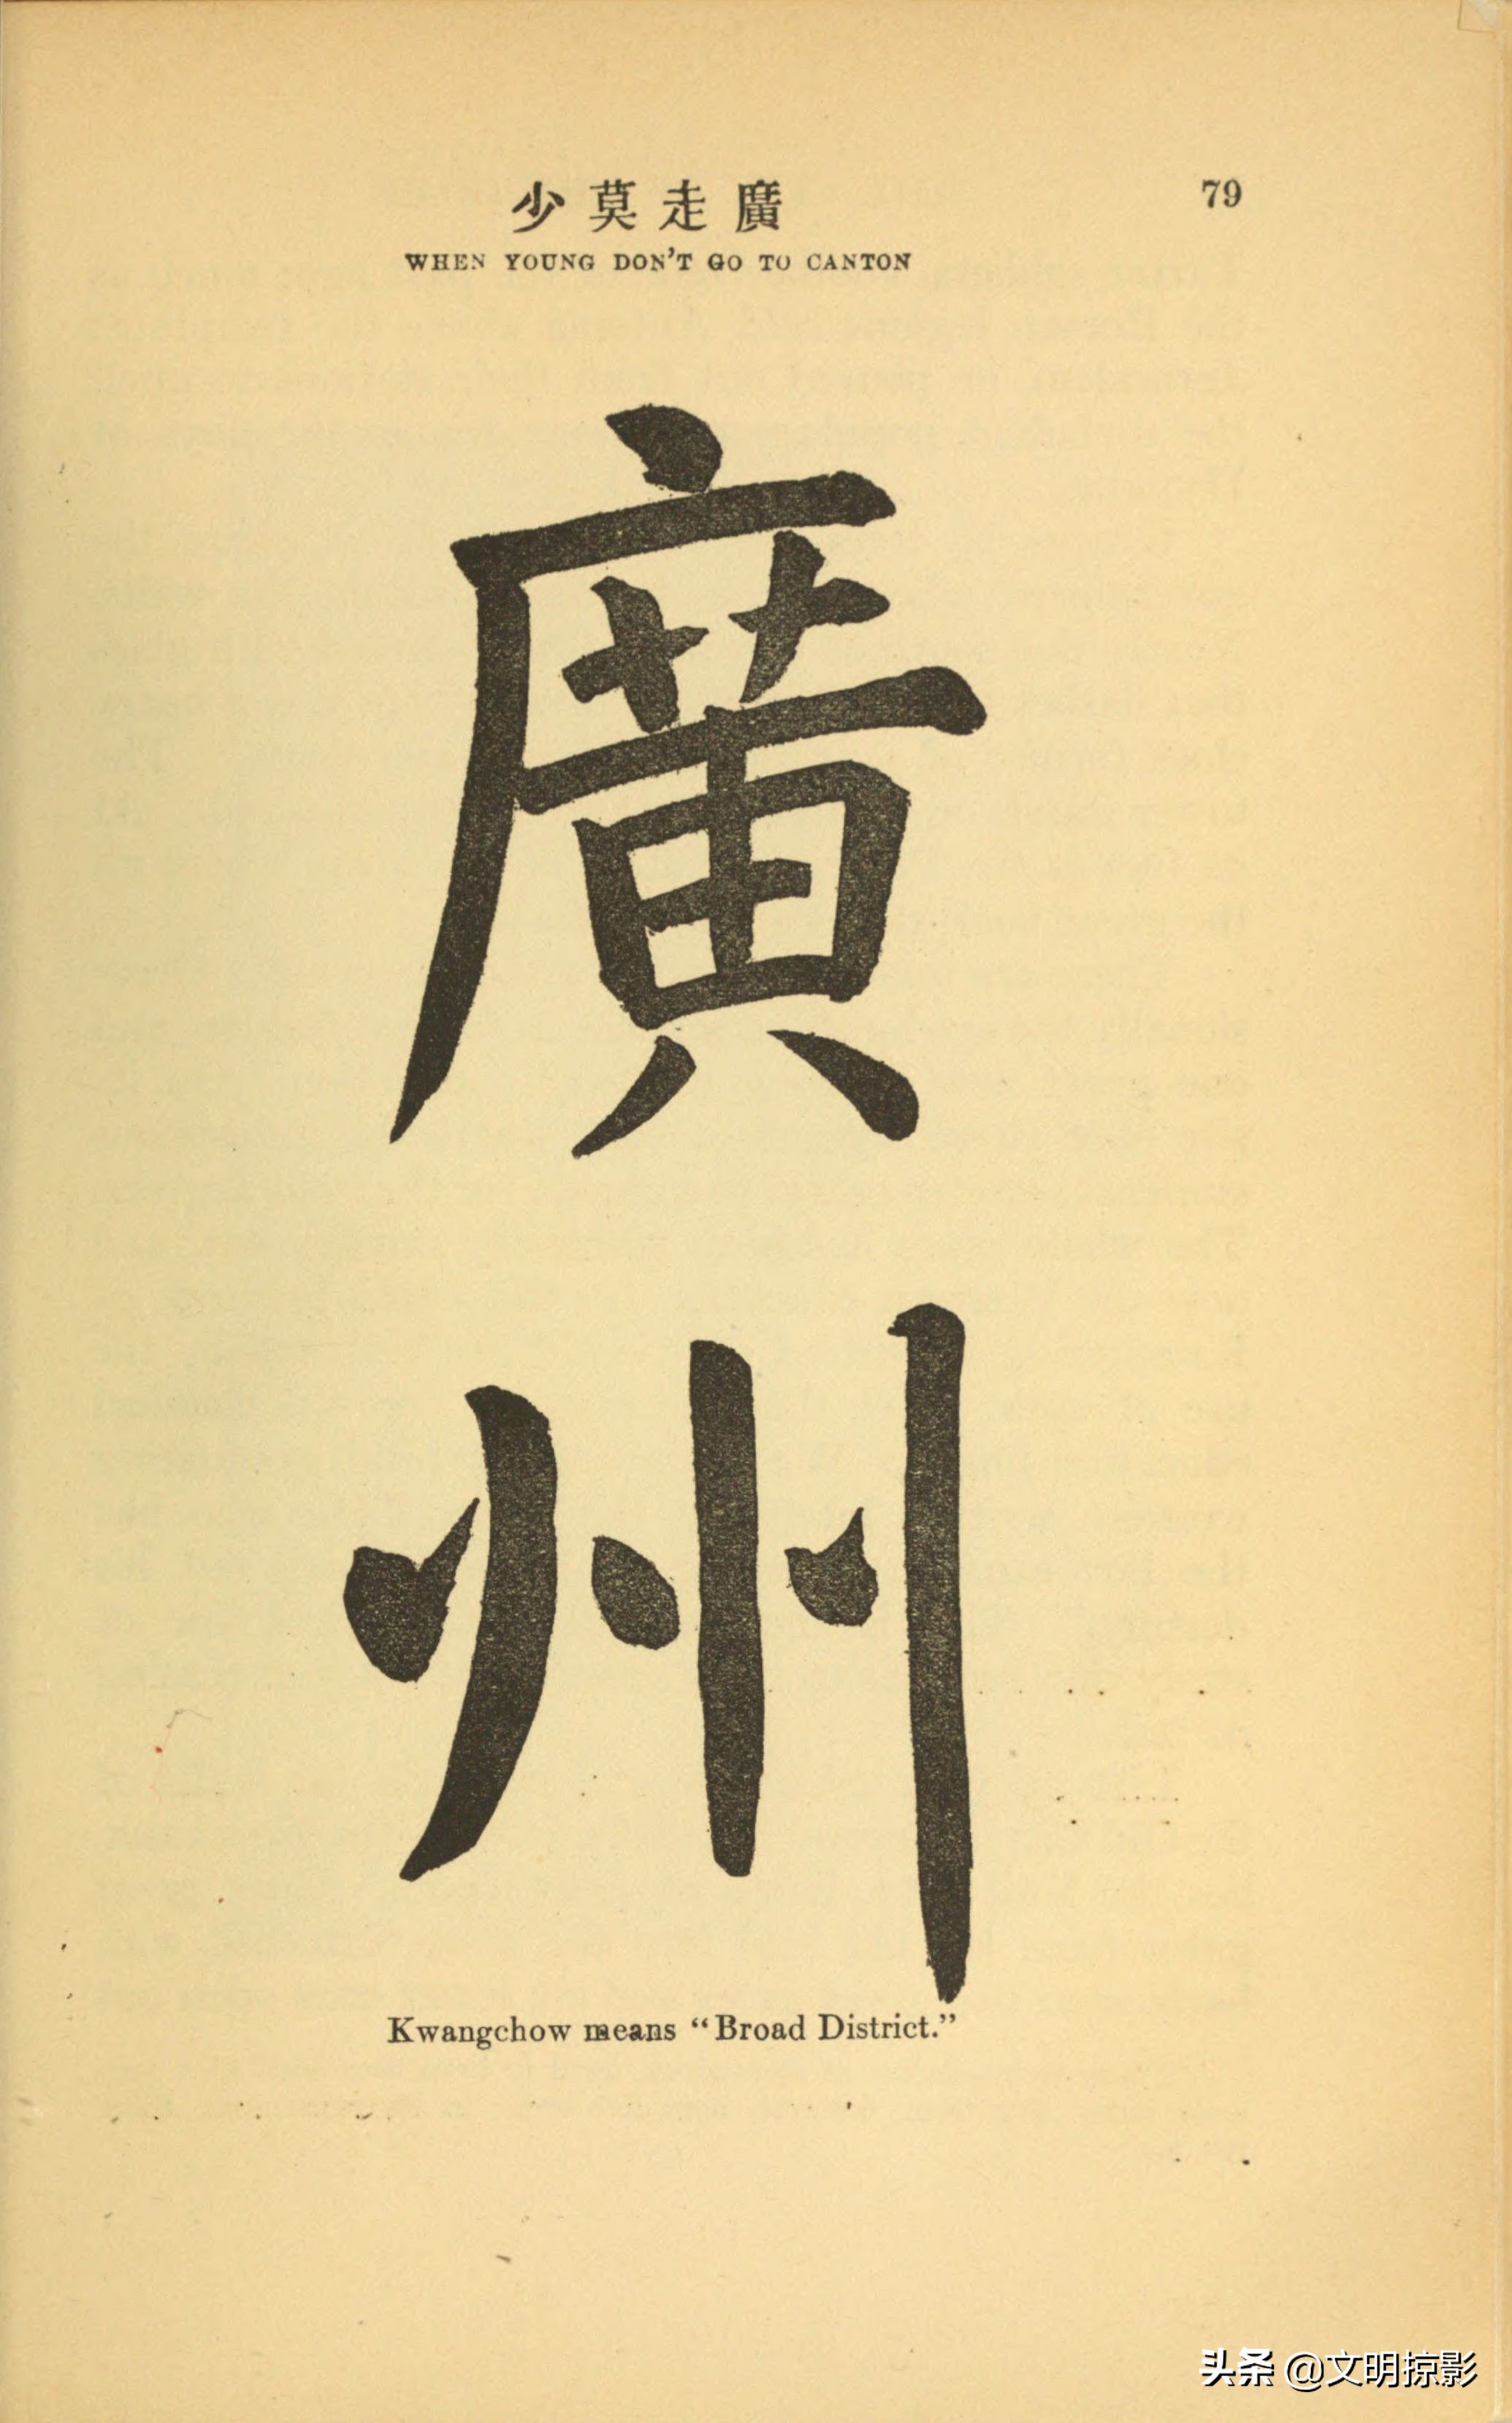 少莫走廣
79
WHEN YOUNG DON'T GO TO CANTON
廣
州
Kwangchow means "Broad District."
头条 @文明掠影